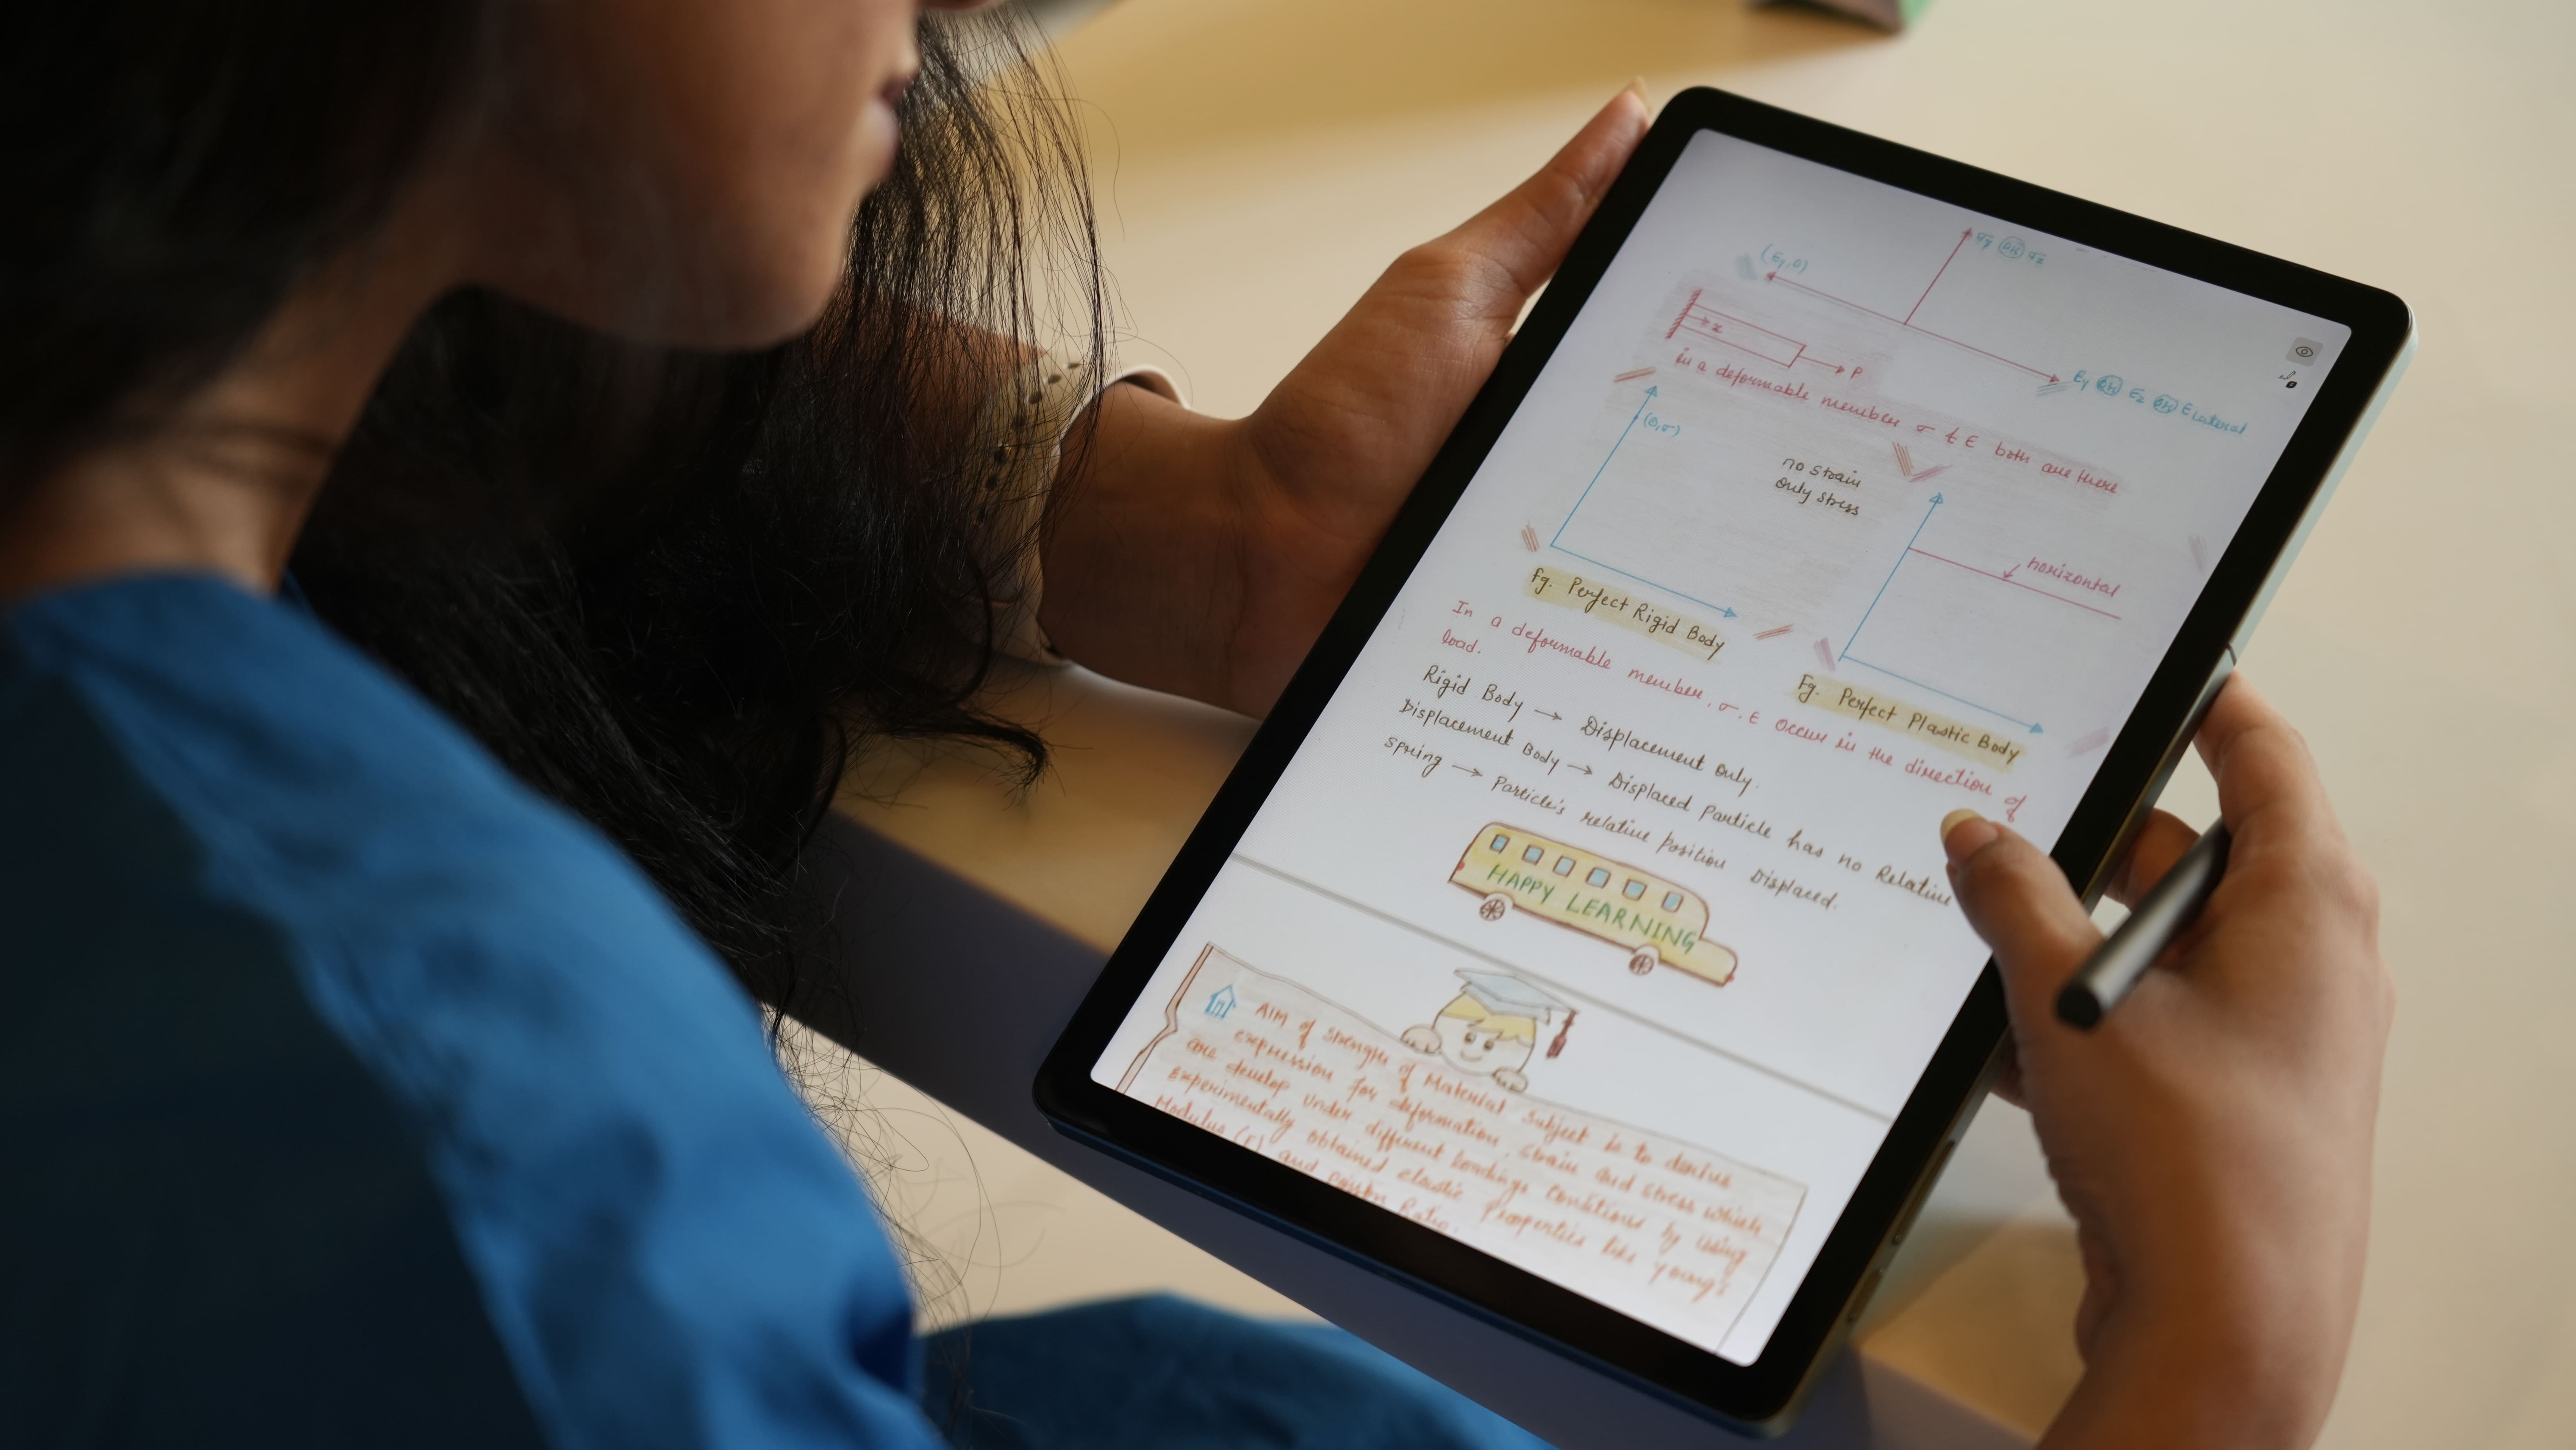 (εy,0)
σy OR σz
x
P
εy OR εz OR εlateral
in a deformable member σ & ε both are there
(0,σ)
no strain
only stress
horizontal
Fg. Perfect Rigid Body
Fg. Perfect Plastic Body
In a deformable member, σ, ε occur in the direction of
load.
Rigid Body → Displacement only.
Displacement Body → Displaced Particle has no Relative
Spring → Particle's relative position Displaced.
HAPPY LEARNING
AIM of strength of Material Subject is to derive
expression for deformation, strain and stress which
are develop under different loadings conditions by using
experimentally obtained elastic Properties like young's
Modulus (E) and Poison Ratio.